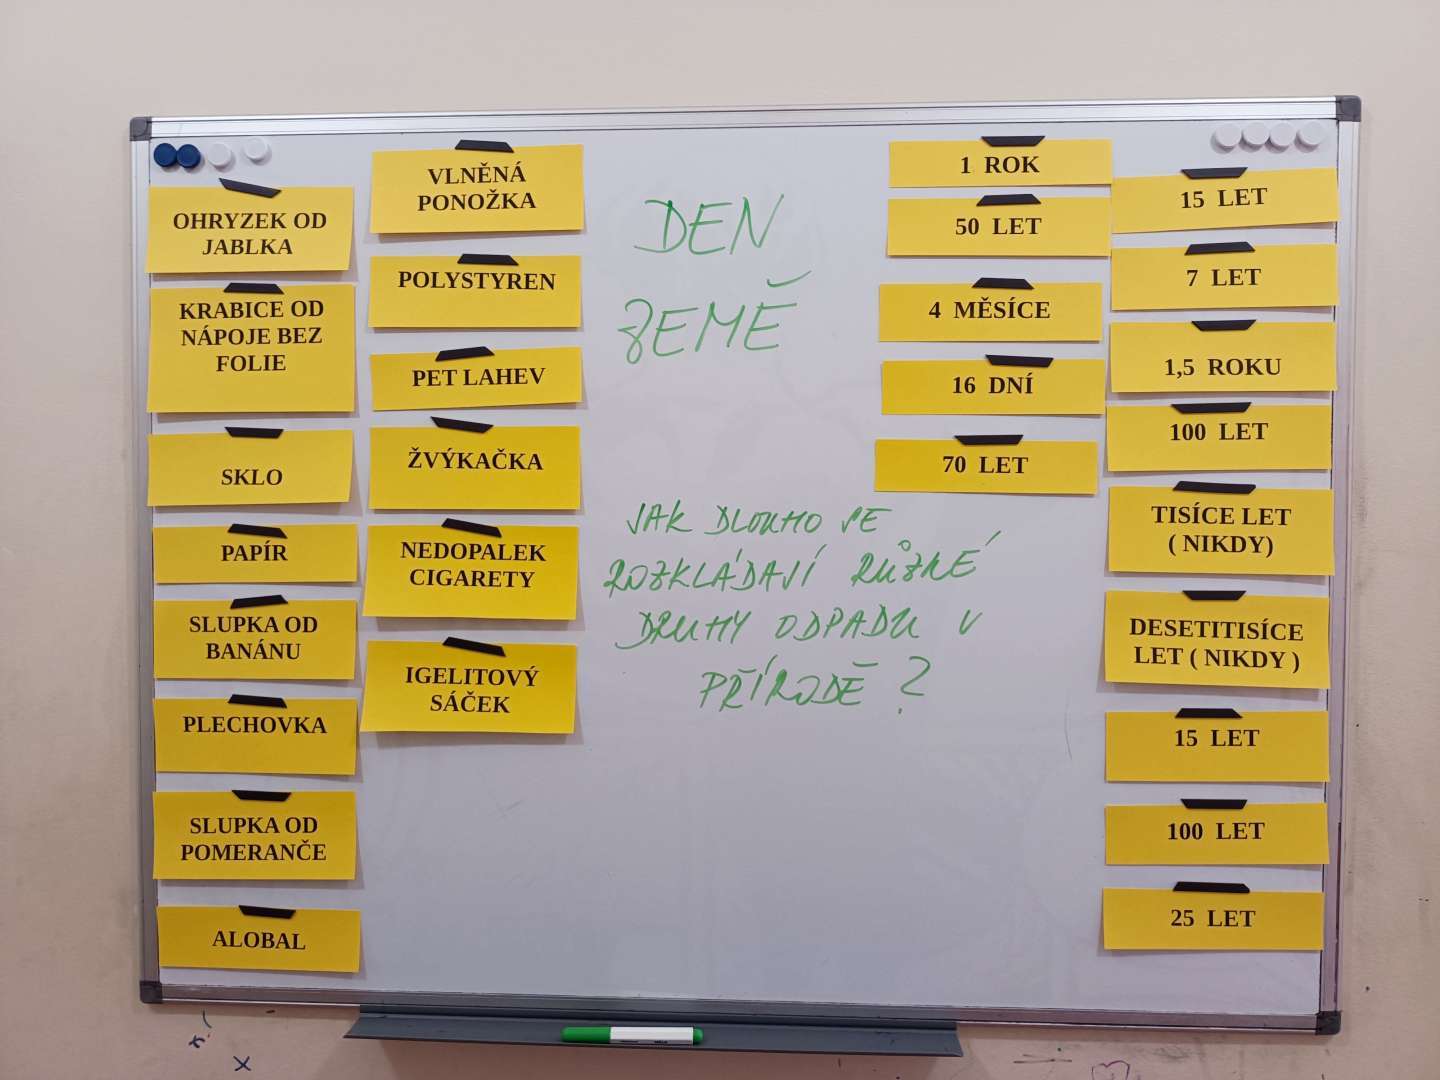 OHRYZEK OD
JABLKA
KRABICE OD
NÁPOJE BEZ
FOLIE
SKLO
PAPÍR
SLUPKA OD
BANÁNU
PLECHOVKA
SLUPKA OD
POMERANČE
ALOBAL
VLNĚNÁ
PONOŽKA
POLYSTYREN
PET LAHEV
ŽVÝKAČKA
NEDOPALEK
CIGARETY
IGELITOVÝ
SÁČEK
DEN
ZEMĚ
JAK DLOUHO SE
ROZKLÁDAJÍ RŮZNÉ
DRUHY ODPADU V
PŘÍRODĚ?
1 ROK
50 LET
4 MĚSÍCE
16 DNÍ
70 LET
15 LET
7 LET
1,5 ROKU
100 LET
TISÍCE LET
( NIKDY)
DESETITISÍCE
LET ( NIKDY )
15 LET
100 LET
25 LET